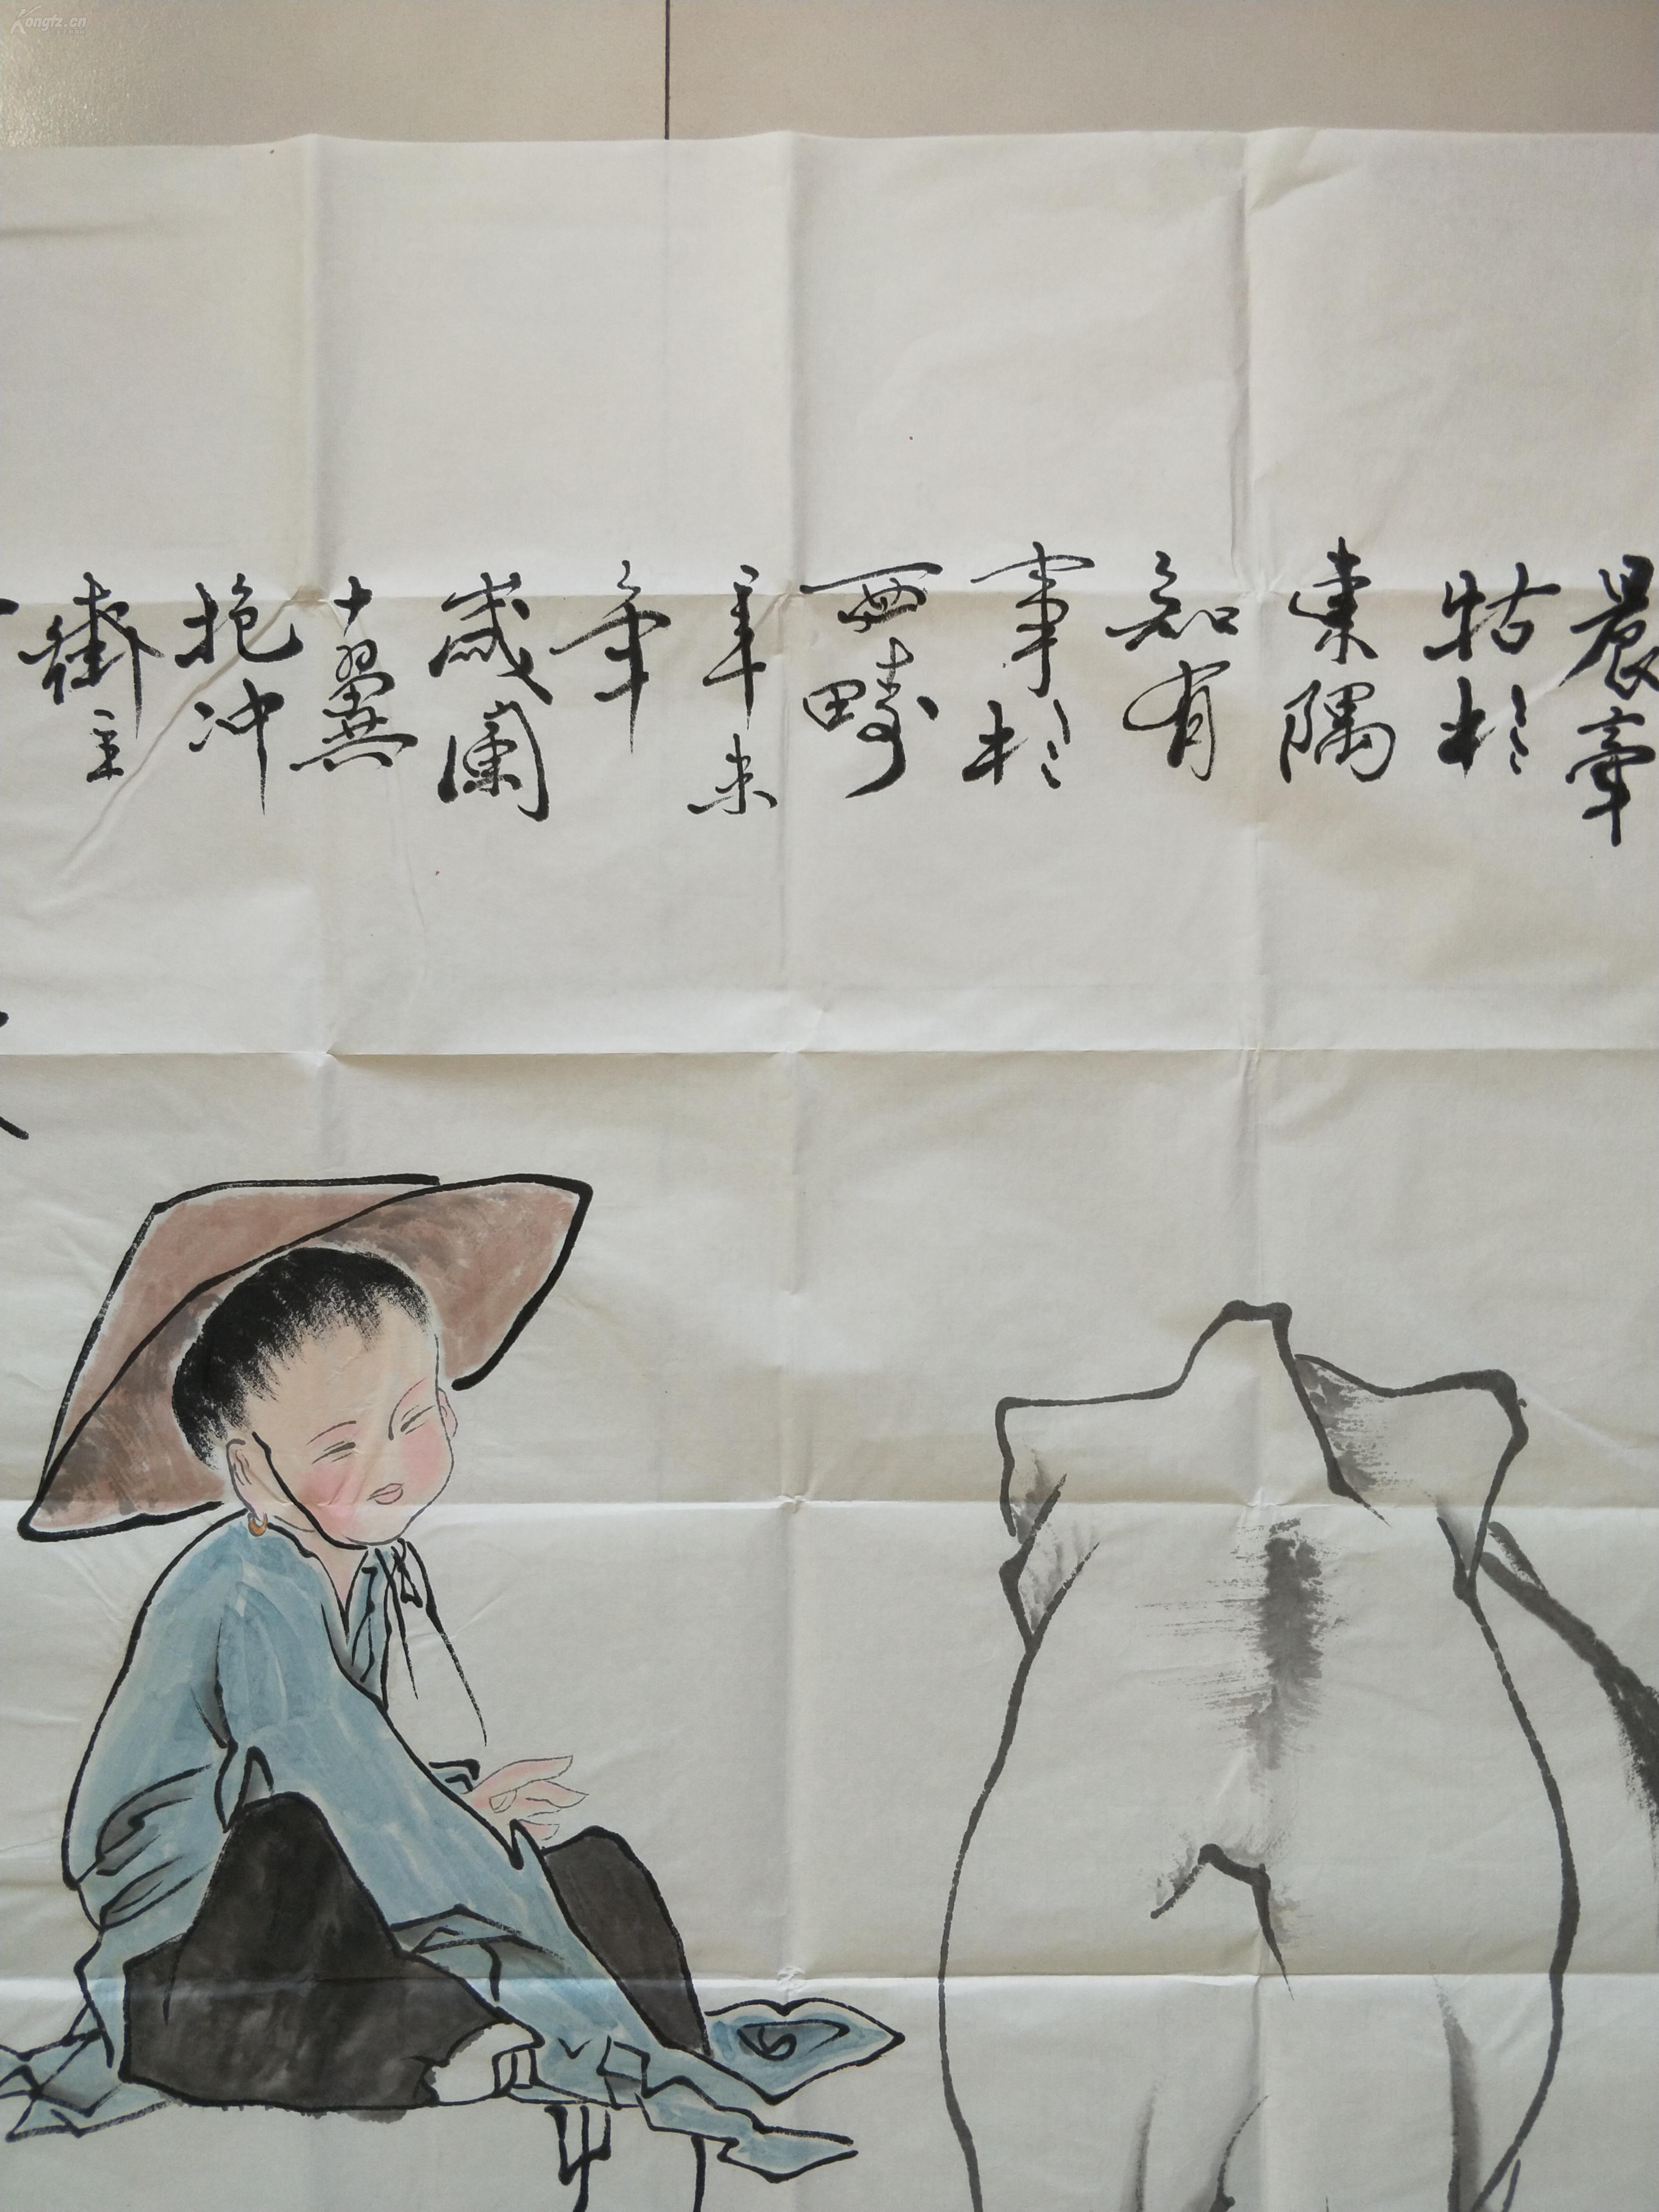 晨牽
牯於
東隅
知有
事於
西疇
辛未
年
歲蘭
十翼
抱冲
主
Kongfz.cn